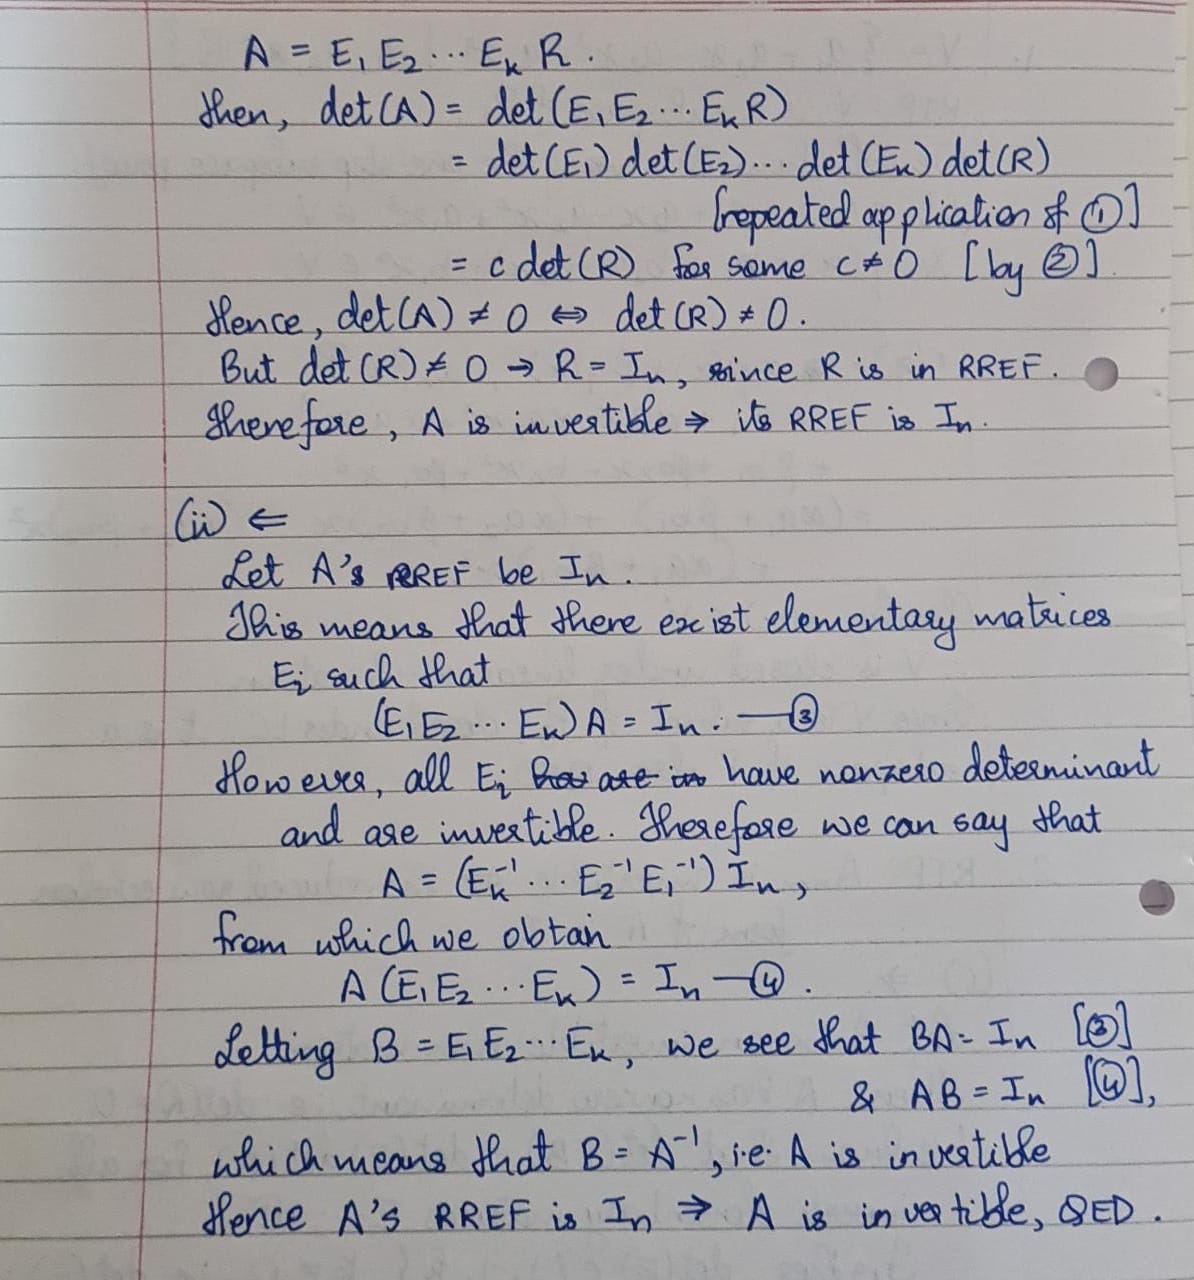 A = E₁ E₂ ... Eₖ R.
then, det(A) = det(E₁E₂ ... EₖR)
= det(E₁) det(E₂)... det(Eₖ) det(R)
[repeated application of ①]
= c det(R) for some c ≠ 0 [by ②]
Hence, det(A) ≠ 0 ⇔ det(R) ≠ 0.
But det(R) ≠ 0 → R = Iₙ, since R is in RREF.
Therefore, A is invertible ⇒ its RREF is Iₙ.
(ii) ⇐
Let A's RREF be Iₙ.
This means that there exist elementary matrices
Eᵢ such that
(E₁E₂ ... Eₖ)A = Iₙ. —③
However, all Eᵢ have nonzero determinant
and are invertible. Therefore we can say that
A = (Eₖ⁻¹ ... E₂⁻¹E₁⁻¹) Iₙ,
from which we obtain
A(E₁E₂ ... Eₖ) = Iₙ —④.
Letting B = E₁E₂ ... Eₖ, we see that BA = Iₙ [③]
& AB = Iₙ [④],
which means that B = A⁻¹, i.e. A is invertible
Hence A's RREF is Iₙ ⇒ A is invertible, QED.